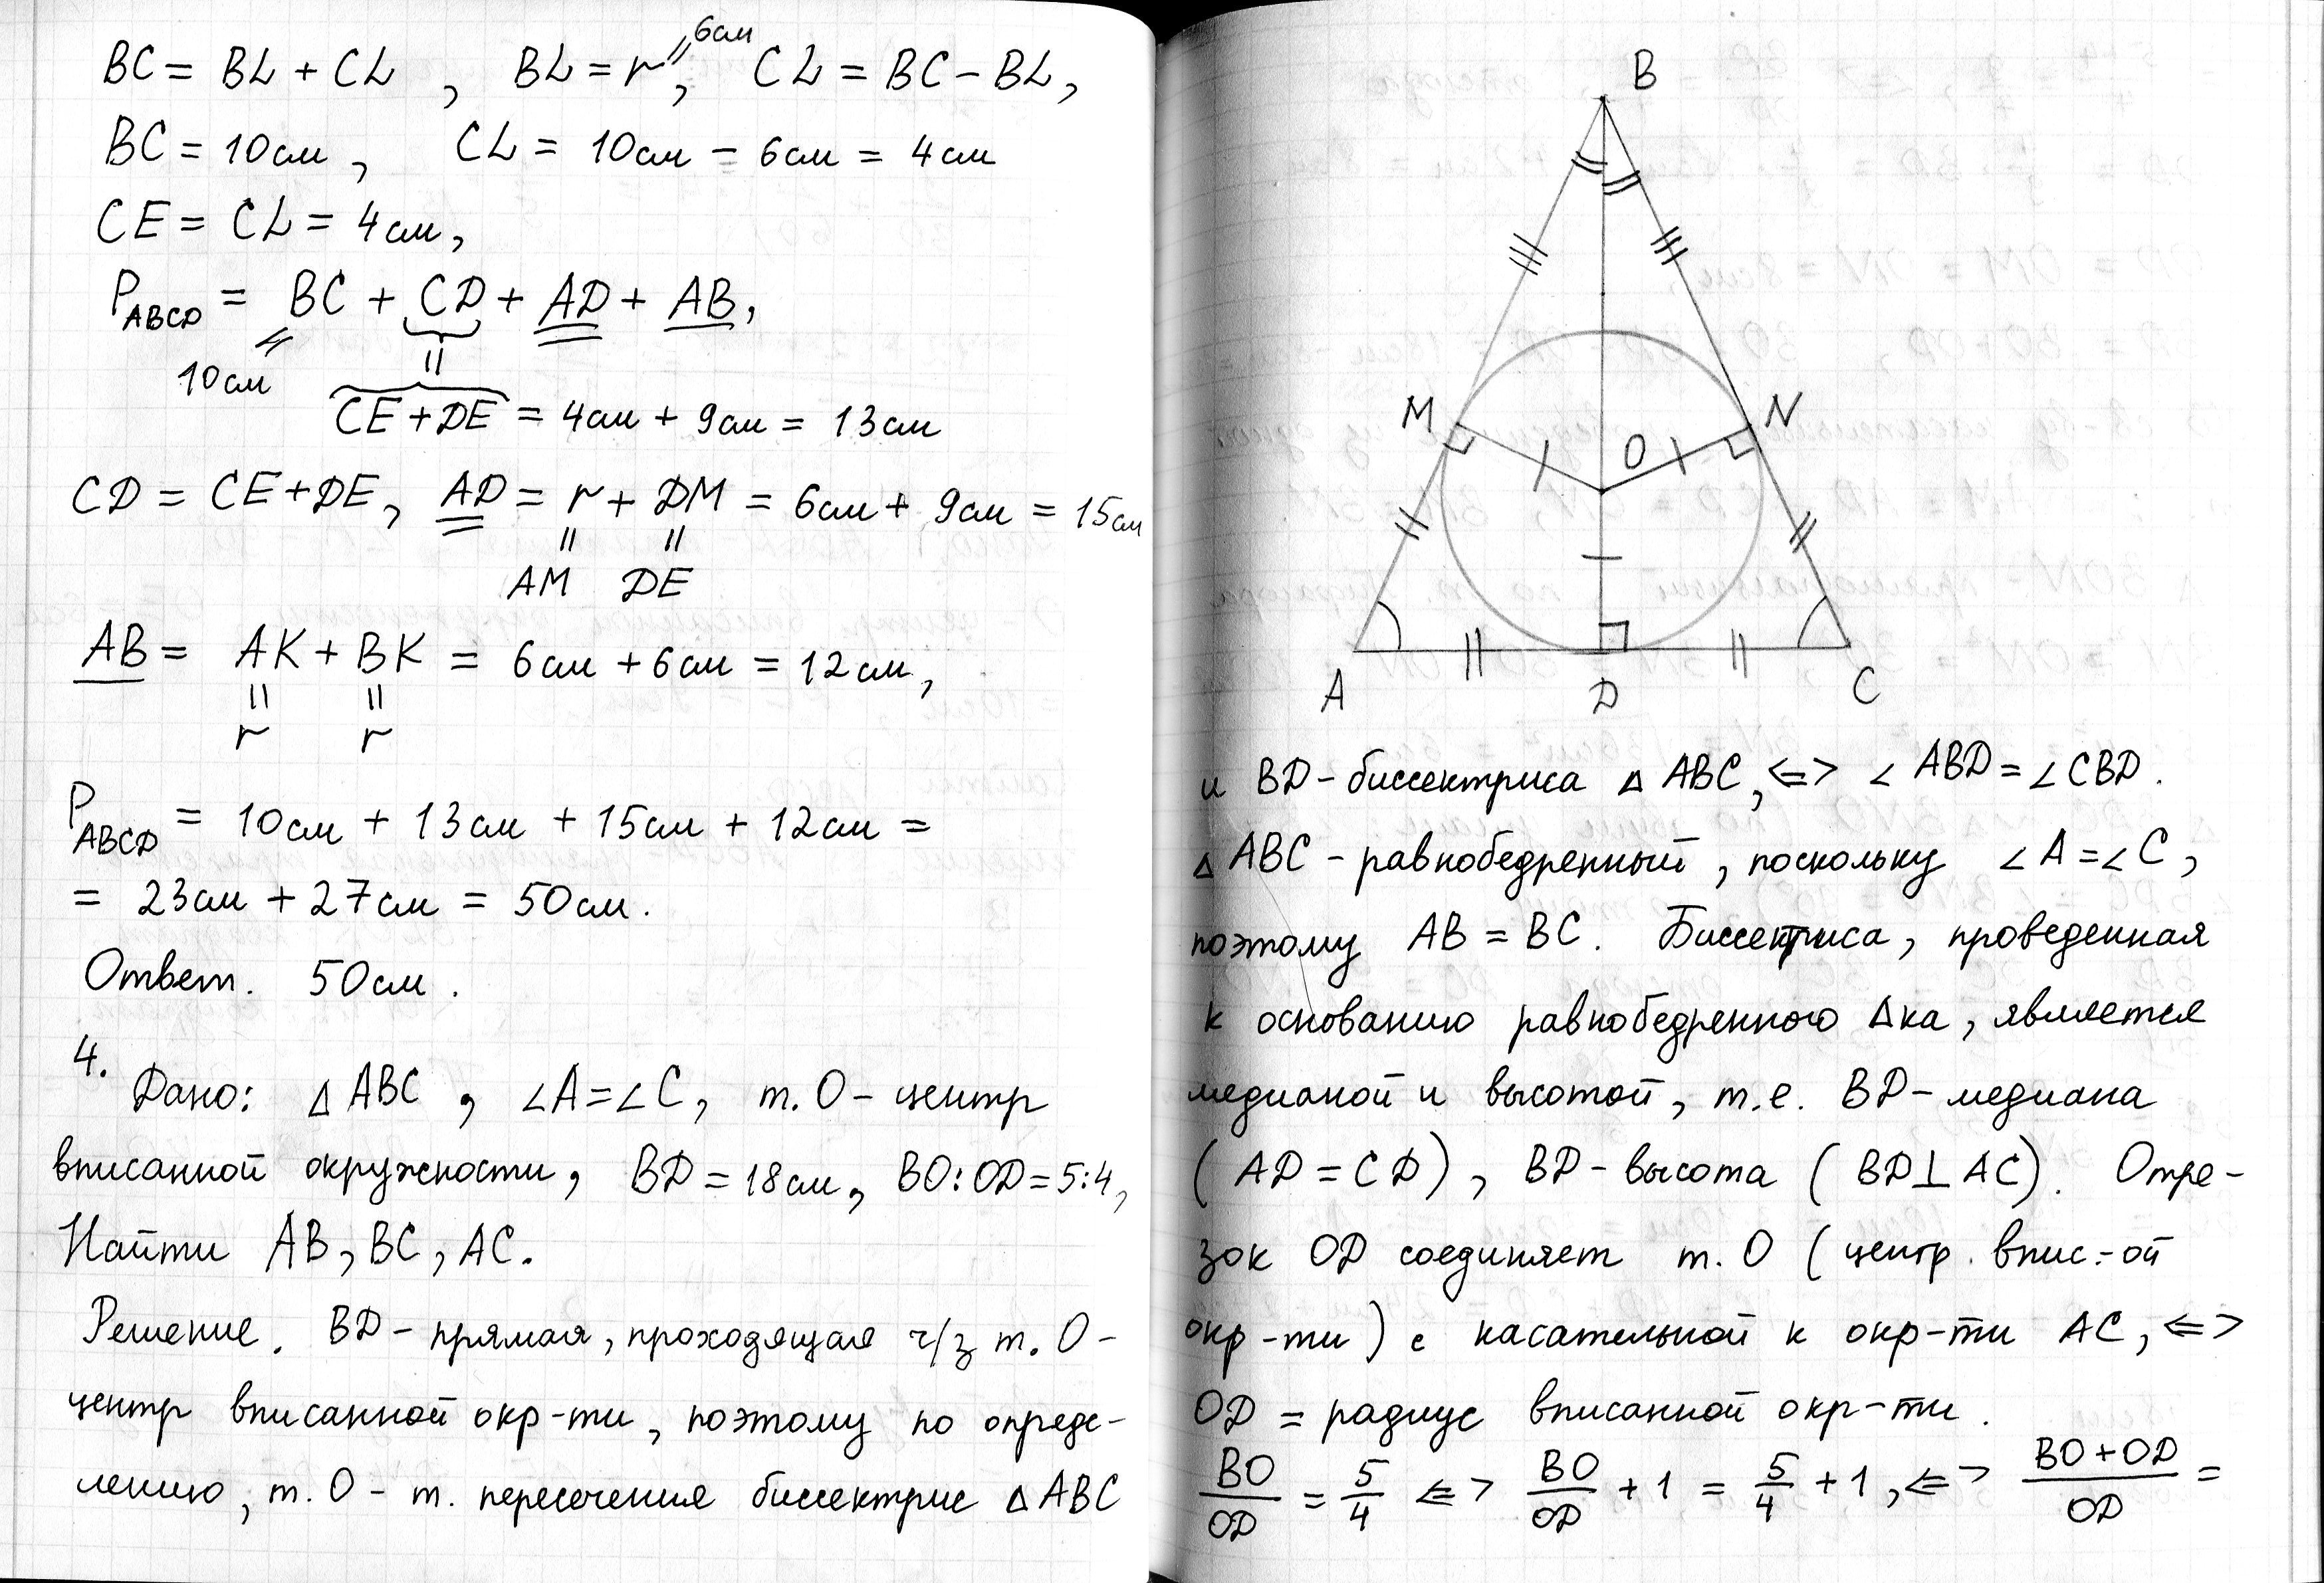 BC = BL + CL , BL = r = 6см, CL = BC − BL,
BC = 10см , CL = 10см − 6см = 4см
CE = CL = 4см,
P_ABCD = BC + CD + AD + AB,
10см
CE + DE = 4см + 9см = 13см
CD = CE + DE, AD = r + DM = 6см + 9см = 15см
AM DE
AB = AK + BK = 6см + 6см = 12см,
r r
P_ABCD = 10см + 13см + 15см + 12см =
= 23см + 27см = 50см.
Ответ. 50см.
4.
Дано: △ABC , ∠A = ∠C, т. O – центр
вписанной окружности, BD = 18см, BO:OD = 5:4,
Найти AB, BC, AC.
Решение. BD – прямая, проходящая ч/з т. O –
центр вписанной окр-ти, поэтому по опреде-
лению, т. O – т. пересечения биссектрис △ABC
B
M N
O
A D C
и BD – биссектриса △ABC, <=> ∠ABD = ∠CBD.
△ABC – равнобедренный, поскольку ∠A = ∠C,
поэтому AB = BC. Биссектриса, проведенная
к основанию равнобедренного △ка, является
медианой и высотой, т.е. BD – медиана
(AD = CD), BD – высота (BD ⊥ AC). Отре-
зок OD соединяет т. O (центр. впис.-ой
окр-ти) с касательной к окр-ти AC, <=>
OD = радиус вписанной окр-ти.
BO/OD = 5/4 <=> BO/OD + 1 = 5/4 + 1, <=> (BO + OD)/OD =